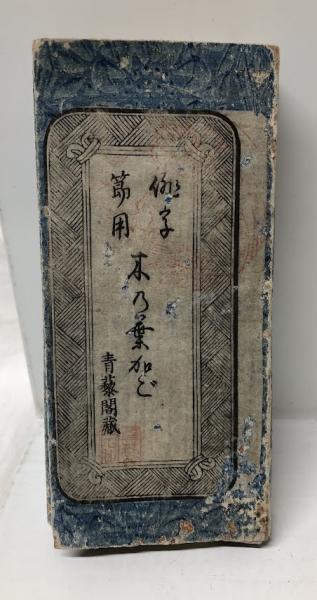 俳字
節用
木乃葉加ご
青藜閣藏